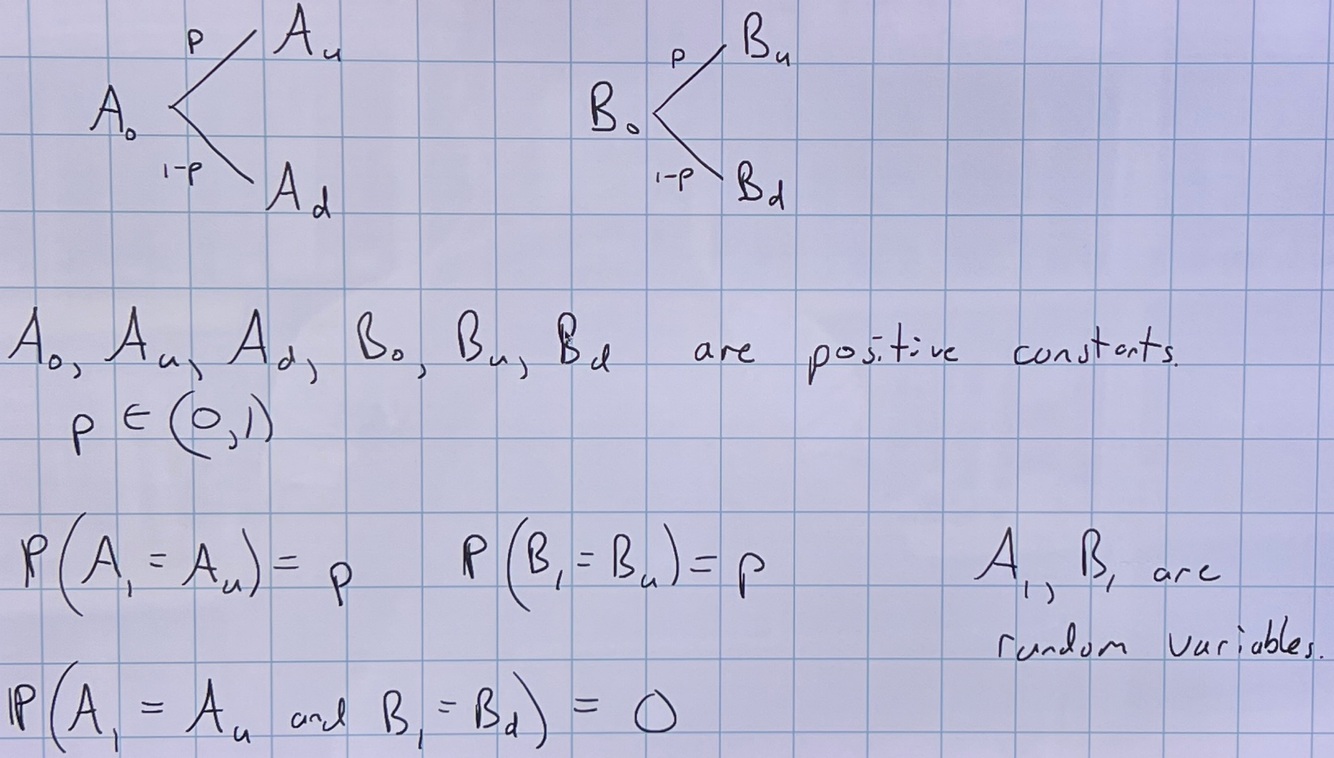 p A_u p B_u
A_0 B_0
1-p A_d 1-p B_d
A_0, A_u, A_d, B_0, B_u, B_d are positive constants.
p ∈ (0,1)
ℙ(A_1 = A_u) = p ℙ(B_1 = B_u) = p A_1, B_1 are
random variables.
ℙ(A_1 = A_u and B_1 = B_d) = 0